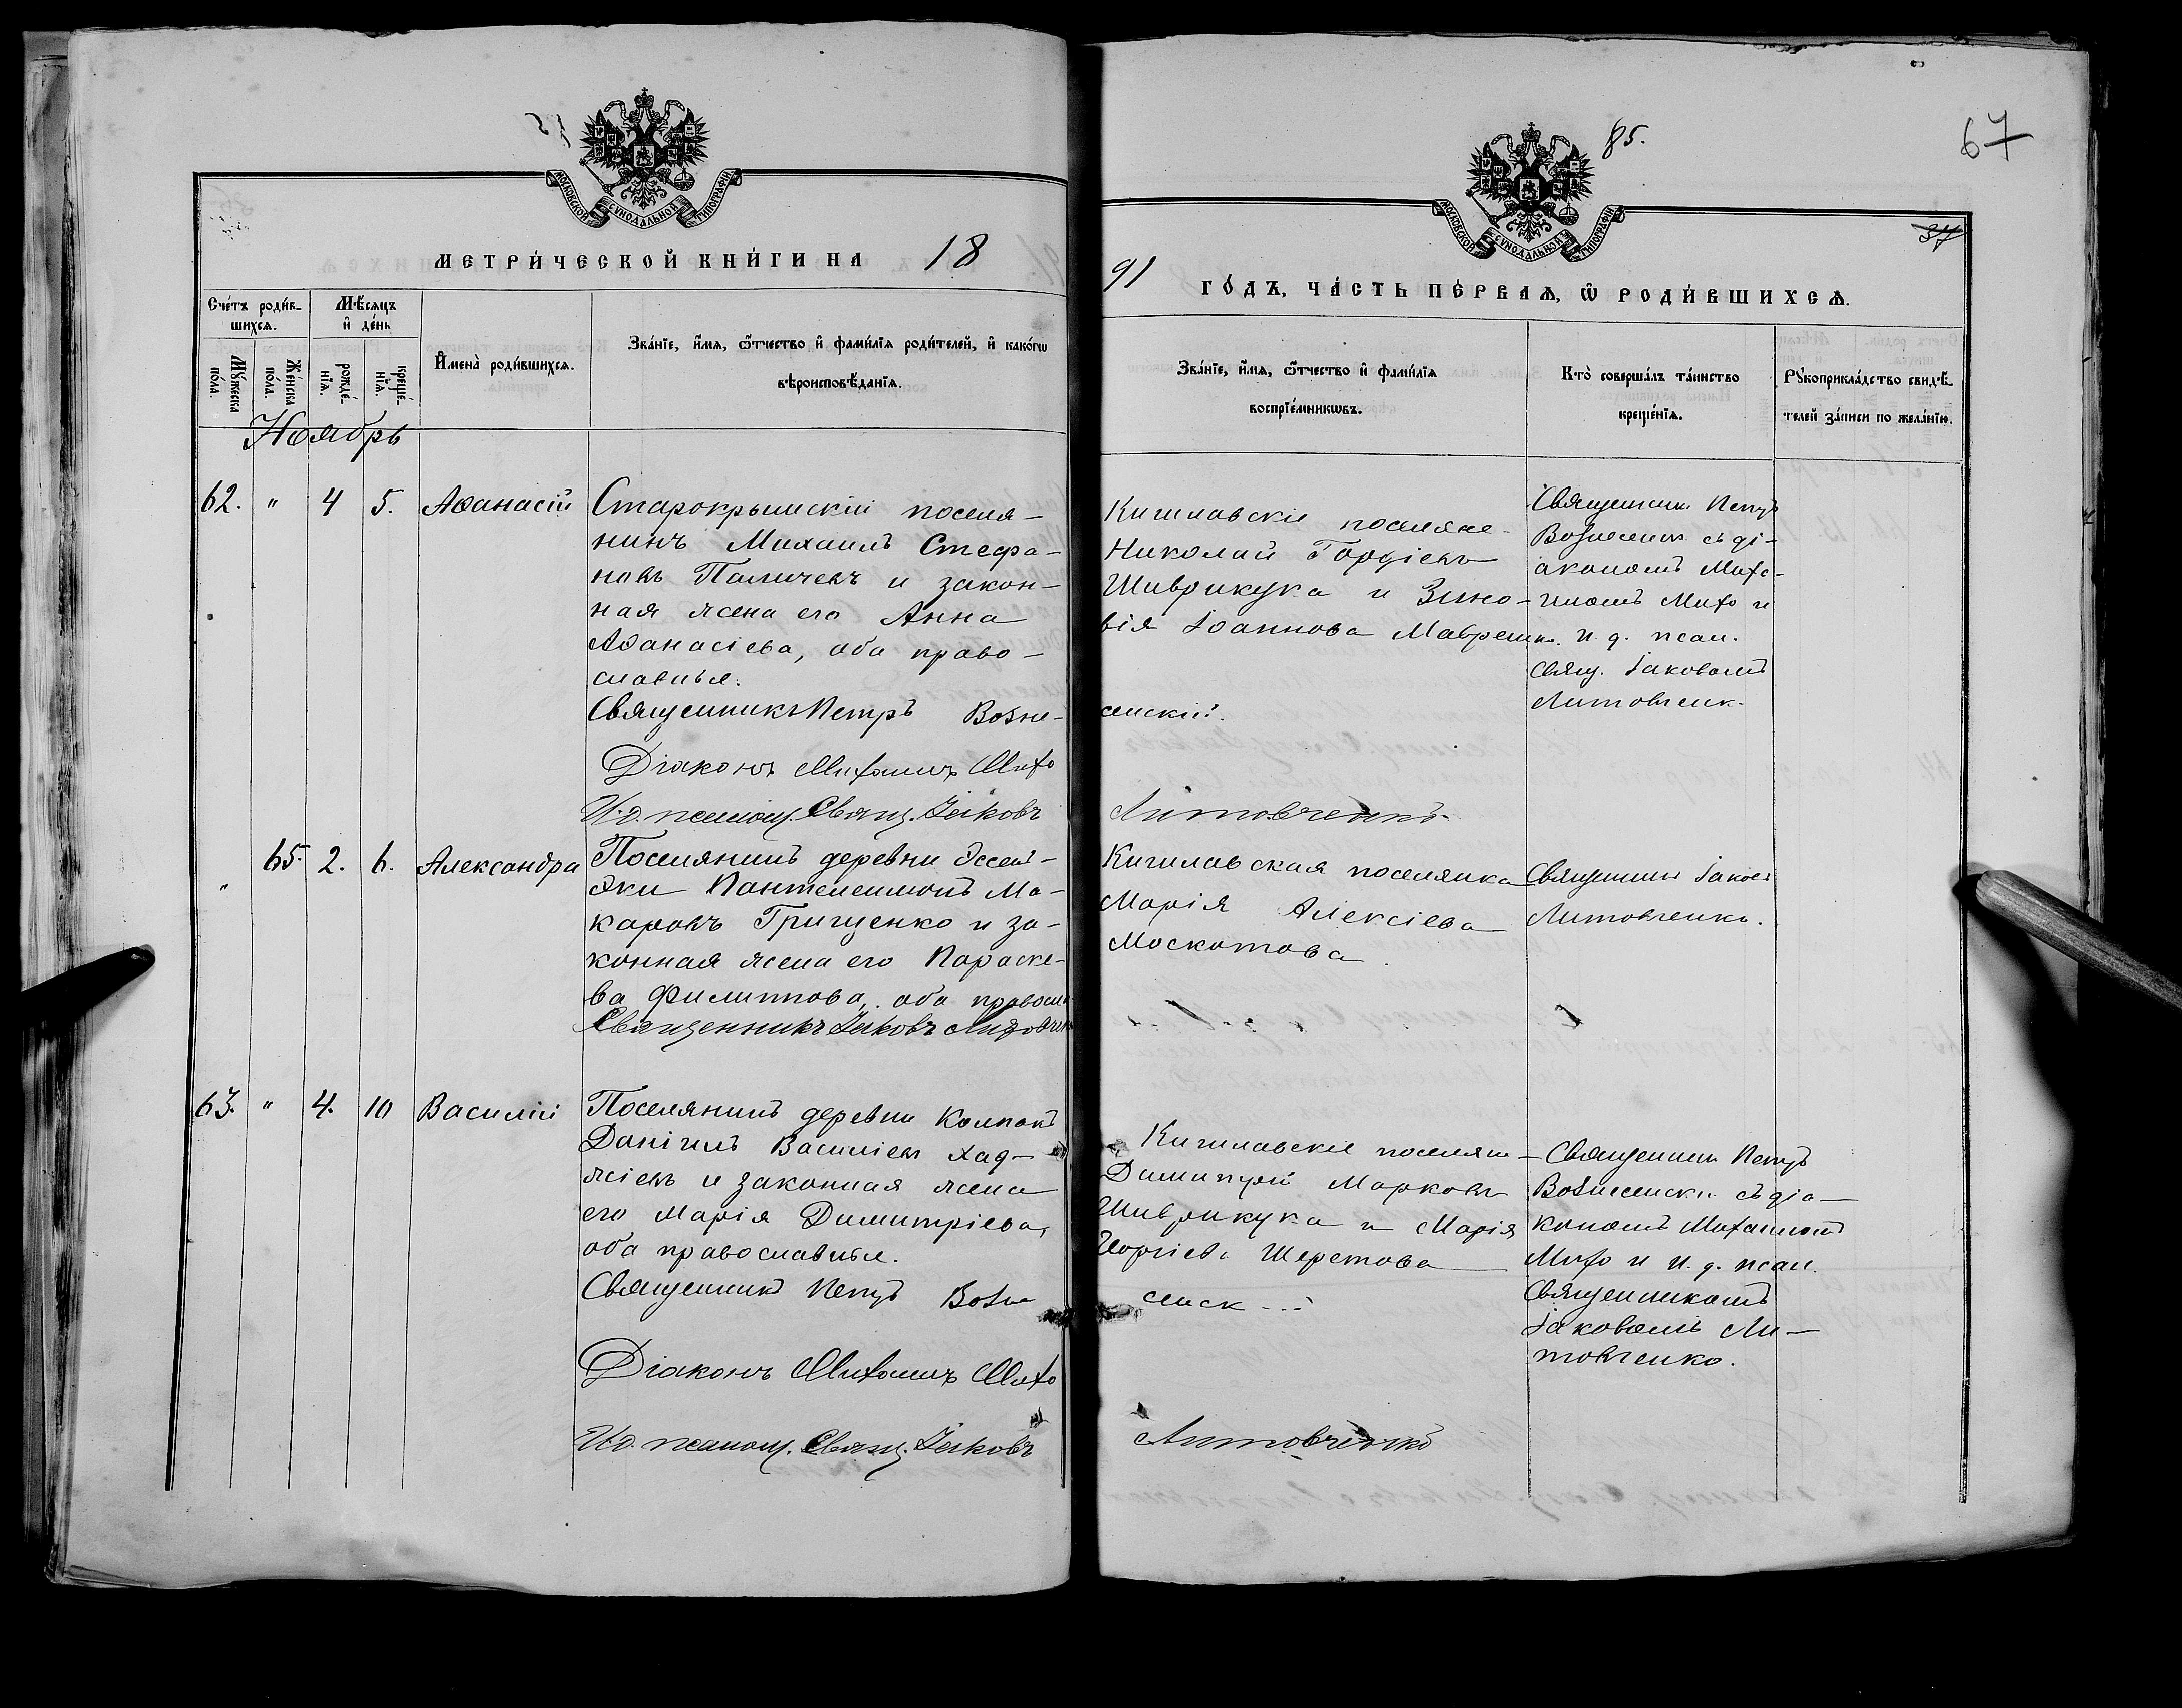 85.
67
МОСКОВСКОЙ СУНОДАЛЬНОЙ ТИПОГРАФІИ
МОСКОВСКОЙ СУНОДАЛЬНОЙ ТИПОГРАФІИ
37
МЕТРИ́ЧЕСКОЙ КНИ́ГИ НА 18
91 ГО́ДЪ, ЧА́СТЬ ПЕ́РВАѦ, Ѿ РОДИ́ВШИХСѦ.
Сче́тъ роди́в-
шихсѧ.
Мꙋ́жеска
по́ла.
Же́нска
по́ла.
Мѣ́сѧцъ
и҆ де́нь
рожде́-
нїѧ.
креще́-
нїѧ.
И҆мена̀ роди́вшихсѧ.
Зва́нїе, и҆́мѧ, ѻ҆́тчество и҆ фами́лїѧ роди́телей, и҆ како́гѡ
вѣроисповѣ́данїѧ.
Зва́нїе, и҆́мѧ, ѻ҆́тчество и҆ фами́лїѧ
воспрїе́мникѡвъ.
Кто̀ соверша́лъ та́инство
креще́нїѧ.
Рꙋкоприкла́дство свидѣ́-
телей за́писи по жела́нїю.
Ноябрь
62. " 4 5. Аѳанасій
Старокрымскій поселя-
нинъ Михаилъ Стефа-
новъ Паличевъ и закон-
ная жена его Анна
Аѳанасіева, оба право-
славные.
Священникъ Петръ Возне-
сенскій.
Діаконъ Михаилъ Михо
И. д. псаломщ. Свящ. Іаковъ
Литовченко
Кишлавскіе поселяне
Николай Гордіевъ
Шиврикука и Зино-
вія Іоаннова Мавреш
Священник Петръ
Вознесенск съ ді-
акономъ Миха-
иломъ Михо и
и. д. псал.
свящ. Іаковомъ
Литовченк.
" 65. 2. 6. Александра
Поселянинъ деревни Эссен-
эки Пантелеимонъ Ма-
каровъ Грищенко и за-
конная жена его Параске-
ва Филиппова, оба правосл
Священникъ Іаковъ Литовченк
Кишлавская поселянка
Марія Алексіева
Москотова
Священник Іаковъ
Литовченко.
63. " 4. 10 Василій
Поселянинъ деревни Колпакъ
Даніилъ Василіевъ Хад-
жіевъ и законная жена
его Марія Димитріева,
оба православные.
Священникъ Петръ Возне
сенск
Діаконъ Михаилъ Михо
И. д. псаломщ. Свящ. Іаковъ
Литовченко
Кишлавскіе поселян
Димитрій Марковъ
Шиврикука и Марія
Георгіева Шеретова
Священник Петръ
Вознесенск съ діа-
кономъ Михаиломъ
Михо и и. д. псал.
Священникомъ
Іаковомъ Ли-
товченко.